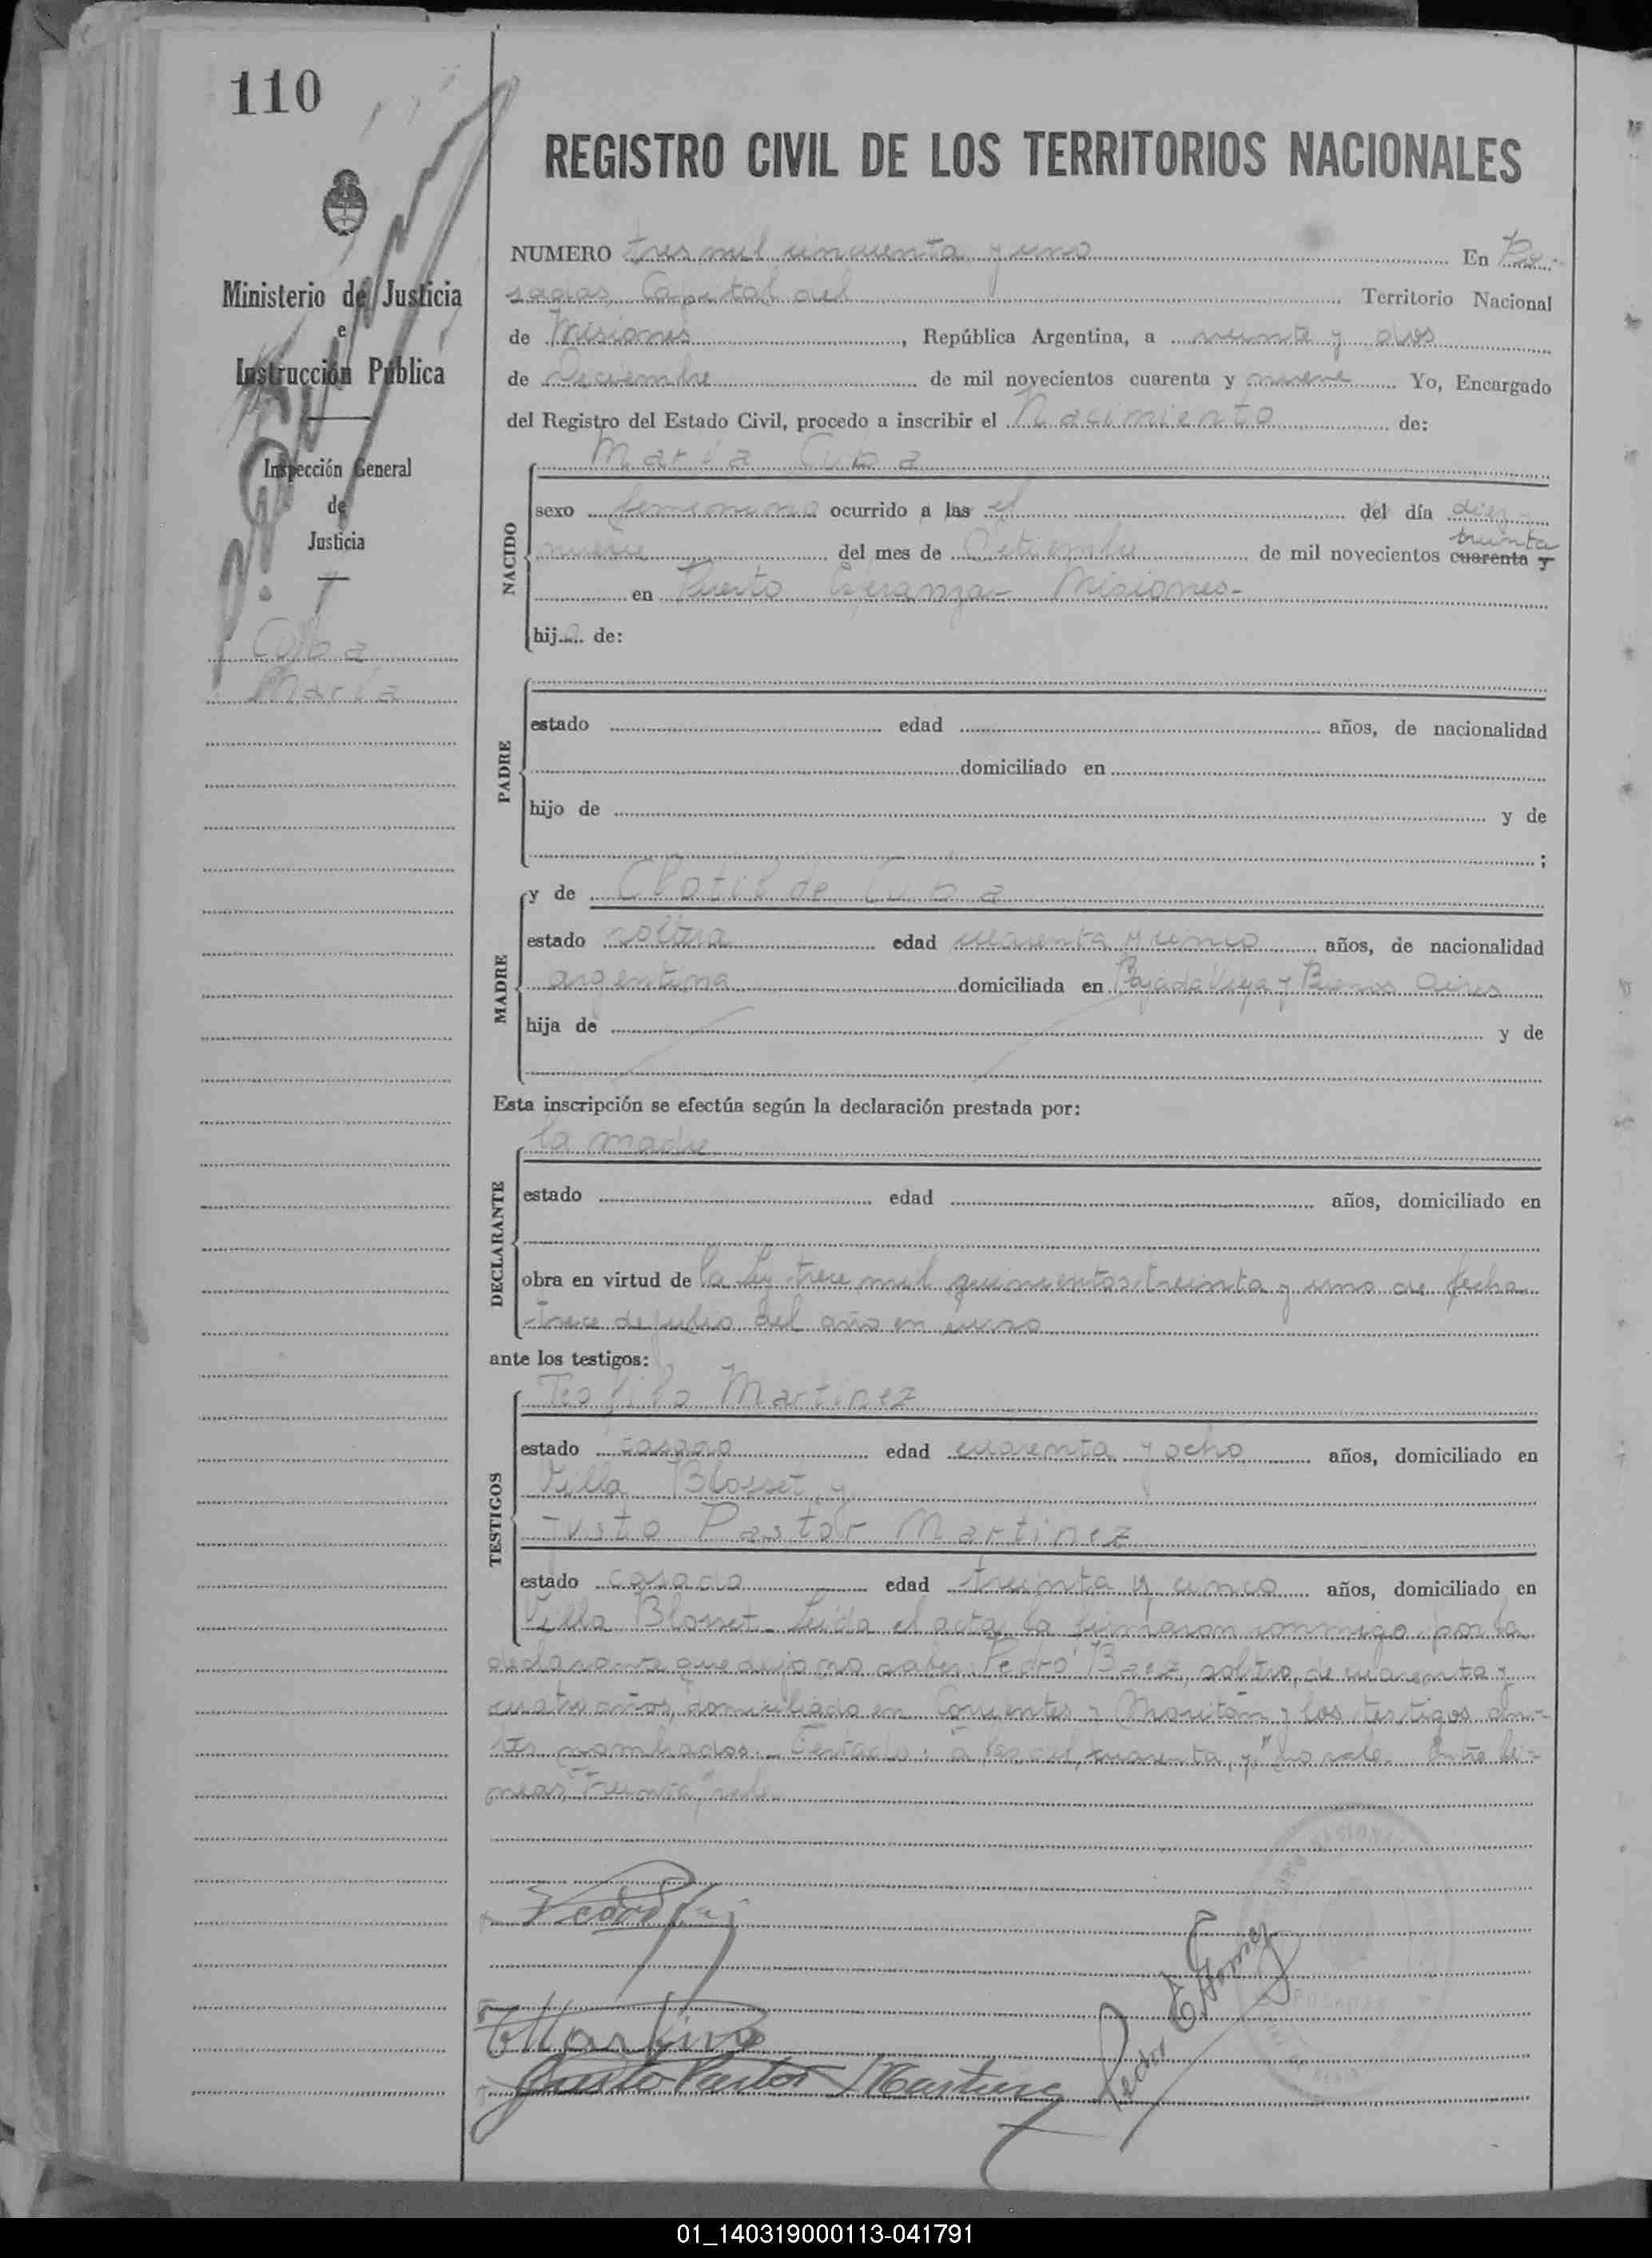 110
REGISTRO CIVIL DE LOS TERRITORIOS NACIONALES
Ministerio de Justicia
e
Instrucción Pública
Inspección General
de
Justicia
Cuba
María
NUMERO tres mil cincuenta y uno En Po-
sadas, Capital del Territorio Nacional
de Misiones, República Argentina, a veinte y dos
de Deciembre de mil novecientos cuarenta y nueve Yo, Encargado
del Registro del Estado Civil, procedo a inscribir el Nacimiento de:
María Cuba
NACIDO
sexo femenino ocurrido a las el del día diez y
nueve del mes de de mil novecientos cuarenta y treinta
en Puerto Esperanza - Misiones -
hija de:
PADRE
estado edad años, de nacionalidad
domiciliado en
hijo de y de
;
MADRE
y de Clotilde Cuba
estado soltera edad cuarenta y cinco años, de nacionalidad
argentina domiciliada en Bajada Vieja y Buenos Aires
hija de y de
Esta inscripción se efectúa según la declaración prestada por:
DECLARANTE
la madre
estado edad años, domiciliado en
obra en virtud de la Ley trece mil quinientos treinta y uno de fecha
trece de julio del año en curso
ante los testigos:
TESTIGOS
Teofilo Martinez
estado casado edad cuarenta y ocho años, domiciliado en
Villa Blosset y
Justo Pastor Martinez
estado casado edad treinta y cinco años, domiciliado en
Villa Blosset - Leída el acta la firmaron conmigo por la
declarante que dijo no saber Pedro Baez, soltero, de cuarenta y
cuatro años, domiciliado en Corrientes y y los testigos an-
tes nombrados. - Testado: "a las del, cuarenta, y" no vale. Entre li-
neas "Treinta", vale.
T Martinez
Justo Pastor Martinez
Pedro E Gomez
01_140319000113-041791